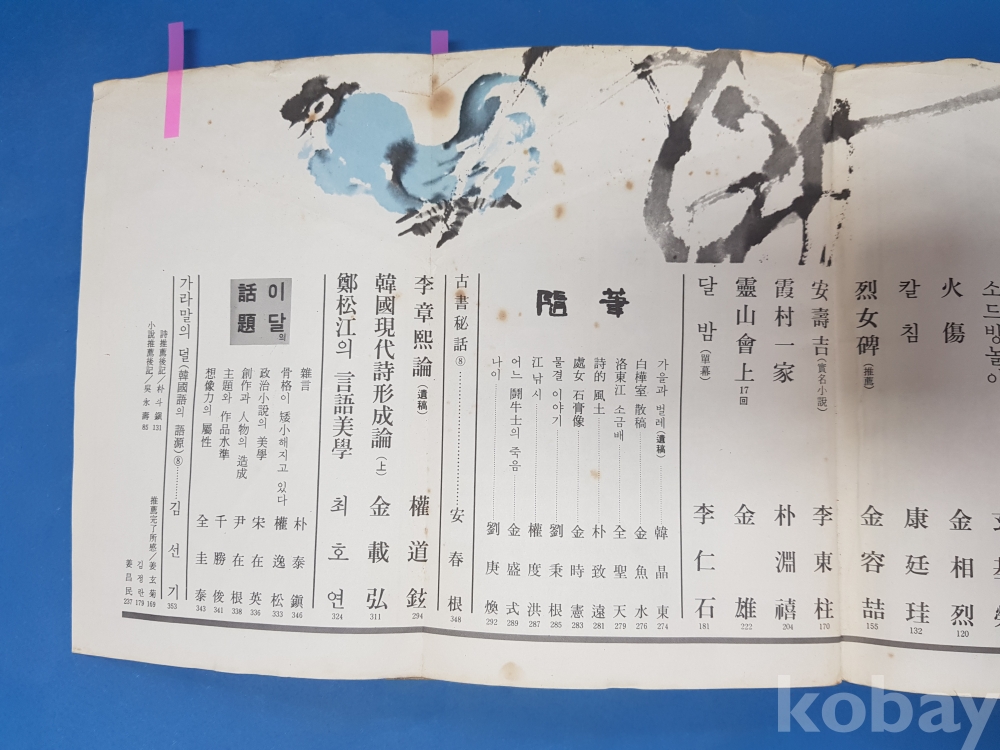 소드방놀이
火傷 金相烈 120
칼침 康廷珪 132
烈女碑(推薦) 金容喆 155
安壽吉(實名小說) 李東柱 170
霞村一家 朴淵禧 204
靈山會上 17回 金雄 222
달밤(單幕) 李仁石 181
隨筆
가을과 벌레(遺稿) 韓晶東 274
白樺室 散稿 金魚水 276
洛東江 소금배 全聖天 279
詩的 風土 朴致遠 281
處女 石膏像 金時憲 283
물결 이야기 劉秉根 285
江낚시 權度洪 287
어느 鬪牛士의 죽음 金盛式 289
나이 劉庚煥 292
古書秘話⑧ 安春根 348
李章熙論(遺稿) 權道鉉 294
韓國現代詩形成論(上) 金載弘 311
鄭松江의 言語美學 최호연 324
이달의 話題
雜言 朴泰鎭 346
骨格이 矮小해지고 있다 權逸松 333
政治小說의 美學 宋在英 356
創作과 人物의 造成 尹在根 338
主題와 作品水準 千勝俊 341
想像力의 屬性 全圭泰 343
가라말의 덜(韓國語의 語源)⑧ 김선기 353
詩推薦後記/朴斗鎭 131
小說推薦後記/吳永壽 85
推薦完了所感/姜玄菊 169
김정란 179
姜昌民 237
kobay